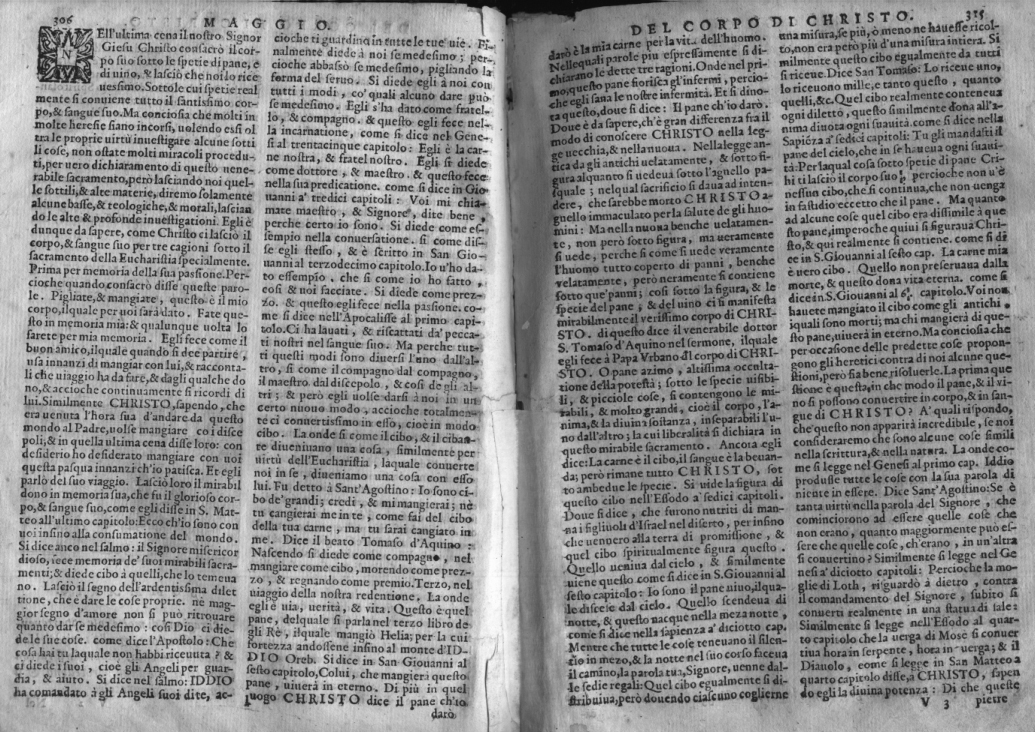 306
MAGGIO.
NELl'ultima cena il nostro Signor
Giesu Christo consacrò il cor-
po suo sotto le spetie di pane, e
di uino, & lasciò che noi lo rice
uessimo. Sotto le cui spetie real
mente si conuiene tutto il santissimo cor-
po, & sangue suo. Ma conciosia che molti in
molte heresie siano incorsi, uolendo essi ol
tra le proprie uirtù inuestigare alcune sotti
li cose, non ostate molti miracoli procedu-
ti, per uero dichiaramento di questo uene-
rabile sacramento, però lasciando noi quel-
le sottili, & alte materie, diremo solamente
alcune basse, & teologiche, & morali, lascian
do le alte & profonde inuestigationi. Egli è
dunque da sapere, come Christo ci lasciò il
corpo, & sangue suo per tre cagioni sotto il
sacramento della Eucharistia specialmente.
Prima per memoria della sua passione. Per-
cioche quando consacrò disse queste paro-
le. Pigliate, & mangiate, questo è il mio
corpo, ilquale per uoi sarà dato. Fate que-
sto in memoria mia: & qualunque uolta lo
farete per mia memoria. Egli fece come il
buon amico, ilquale quando si dee partire,
usa innanzi di mangiar con lui, & racconta-
li che uiaggio ha da fare, & dagli qualche do
no, & accioche continuamente si ricordi di
lui. Similmente CHRISTO, sapendo, che
era uenuta l'hora sua d'andare da questo
mondo al Padre, uolse mangiare co i disce
poli, & in quella ultima cena disse loro: con
desiderio ho desiderato mangiare con uoi
questa pasqua innanzi ch'io patisca. Et egli
parlò del suo viaggio. Lasciò loro il mirabil
dono in memoria sua, che fu il glorioso cor-
po, & sangue suo, come egli disse in S. Mat-
teo all'ultimo capitolo: Ecco ch'io sono con
uoi insino alla consumatione del mondo.
Si dice anco nel salmo: il Signore misericor
dioso, fece memoria de' suoi mirabili sacra-
menti; & diede cibo à quelli, che lo temeua
no. Lasciò il segno dell'ardentissima dilet
tione, che è dare le cose proprie. nè mag-
gior segno d'amore non si può ritrouare
quanto dar se medesimo: così Dio ci die-
de le sue cose. come dice l'Apostolo: Che
cosa hai tu laquale non habbi riceuuta? &
ci diede i suoi, cioè gli Angeli per guar-
dia, & aiuto. Si dice nel salmo: IDDIO
ha comandato à gli Angeli suoi dite, ac-
cioche ti guardino in tutte le tue uie. Fi-
nalmente diede à noi se medesimo; per-
cioche abbassò se medesimo, pigliando la
forma del seruo. Si diede egli à noi con
tutti i modi, co' quali alcuno dare può
se medesimo. Egli s'ha dato come fratel-
lo, & compagno. & questo egli fece nel-
la incarnatione, come si dice nel Gene-
si al trentacinque capitolo: Egli è la car-
ne nostra, & fratel nostro. Egli si diede
come dottore, & maestro. & questo fece
nella sua predicatione. come si dice in Gio
uanni a' tredici capitoli: Voi mi chia-
mate maestro, & Signore, dite bene,
perche certo io sono. Si diede come es-
sempio nella conuersatione. si come dis-
se egli stesso, & è scritto in San Gio-
uanni al terzodecimo capitolo. Io u'ho da-
to essempio, che si come io ho fatto,
così & uoi facciate. Si diede come prez-
zo. & questo egli fece nella passione. co-
me si dice nell'Apocalisse al primo capi-
tolo. Ci ha lauati, & riscattati da' pecca-
ti nostri nel sangue suo. Ma perche tut-
ti questi modi sono diuersi l'uno dall'al-
tro, si come il compagno dal compagno,
il maestro dal discepolo, & così de gli al-
tri; & però egli uolse darsi à noi in un
certo nuouo modo, accioche totalmen-
te ci conuertissimo in esso, cioè in modo
cibo. La onde si come il cibo, & il ciban-
te diuentano una cosa, similmente per
uirtù dell'Eucharistia, laquale conuerte
noi in se, diueniamo una cosa con esso
lui. Fu detto à Sant'Agostino: Io sono ci-
bo de' grandi; credi, & mi mangierai; nè
tu cangierai me in te, come fai del cibo
della tua carne, ma tu sarai cangiato in
me. Dice il beato Tomaso d'Aquino:
Nascendo si diede come compagno, nel
mangiare come cibo, morendo come prez-
zo, & regnando come premio. Terzo, nel
uiaggio della nostra redentione. La onde
egli è uia, uerità, & vita. Questo è quel
pane, delquale si parla nel terzo libro de
gli Rè, ilquale mangiò Helia; per la cui
fortezza andossene insino al monte d'ID-
DIO Oreb. Si dice in San Giouanni al
sesto capitolo, Colui, che mangierà questo
pane, uiuerà in eterno. Di più in quel
luogo CHRISTO dice il pane ch'io
darò
DEL CORPO DI CHRISTO.
315
darò è la mia carne per la vita dell'huomo.
Nellequali parole più espressamente si di-
chiarano le dette tre ragioni. Onde nel pri-
mo, questo pane fiorisca gl'infermi, percio-
che egli sana le nostre infermità. Et si dino-
ta questo, doue si dice: Il pane ch'io darò.
Doue è da sapere, ch'è gran differenza fra il
modo di conoscere CHRISTO nella leg-
ge uecchia, & nella nuoua. Nella legge an-
tica da gli antichi uelatamente, & sotto fi-
gura alquanto si uedeua sotto l'agnello pa-
squale; nelqual sacrificio si daua ad inten-
dere, che sarebbe morto CHRISTO a-
gnello immaculato per la salute de gli huo-
mini: Ma nella nuoua benche uelatamen-
te, non però sotto figura, ma ueramente
si uede, perche si come si uede ueramente
l'huomo tutto coperto di panni, benche
velatamente, però ueramente si contiene
sotto que' panni; così sotto la figura, & le
specie del pane, & del uino ci si manifesta
mirabilmente il verissimo corpo di CHRI-
STO. di questo dice il venerabile dottor
S. Tomaso d'Aquino nel sermone, ilquale
egli fece à Papa Vrbano del corpo di CHRI-
STO. O pane azimo, altissima occulta-
tione della potestà; sotto le specie uisibi-
li, & picciole cose, si contengono le mi-
rabili, & molto grandi, cioè il corpo, l'a-
nima, & la diuina sostanza, inseparabili l'u-
no dall'altro; la cui liberalità si dichiara in
questo mirabile sacramento. Ancora egli
dice: La carne è il cibo, il sangue è la beuan-
da; però rimane tutto CHRISTO, sot
to ambedue le specie. Si vide la figura di
questo cibo nell'Essodo a' sedici capitoli.
Doue si dice, che furono nutriti di man-
na i figliuoli d'Israel nel diserto, per infino
che uenuero alla terra di promissione, &
quel cibo spiritualmente figura questo.
Quello ueniua dal cielo, & similmente
uiene questo come si dice in S. Giouanni al
sesto capitolo: Io sono il pane uiuo, ilqua-
le discesi dal cielo. Quello scendeua di
notte, & questo nacque nella meza notte,
come si dice nella sapienza a' diciotto cap.
Mentre che tutte le cose teneuano il silen-
tio in mezo, & la notte nel suo corso faceua
il camino, la parola tua, Signore, uenne dal-
le sedie regali: Quel cibo egualmente si di-
stribuiua, però douendo ciascuno coglierne
una misura, se più, ò meno ne hauesse ricol-
to, non era però più d'una misura intiera. Si
milmente questo cibo egualmente da tutti
si riceue. Dice San Tomaso: Lo riceue uno,
lo riceuono mille, e tanto questo, quanto
quelli, &c. Quel cibo realmente conteneua
ogni diletto, questo similmente dona all'a-
nima diuota ogni suauità. come si dice nella
Sapiẽza a' sedici capitoli: Tu gli mandasti il
pane del cielo, che in se haueua ogni suaui-
tà: Per laqual cosa sotto spetie di pane Cri-
hi ti lasciò il corpo suo, percioche non u'è
nessun cibo, che si continua, che non uenga
in fastidio eccetto che il pane. Ma quanto
ad alcune cose quel cibo era dissimile à que
sto pane, imperoche quiui si figuraua Chri-
sto, & qui realmente si contiene. come si di
ce in S. Giouanni al sesto cap. La carne mia
è uero cibo. Quello non preseruaua dalla
morte, & questo dona vita eterna. come si
dice in S. Giouanni al 6. capitolo. Voi non
hauete mangiato il cibo come gli antichi,
iquali sono morti; ma chi mangierà di que-
sto pane, uiuerà in eterno. Ma conciosia che
per occasione delle predette cose propon-
gono gli heretici contra di noi alcune que-
stioni, però fia bene, risoluerle. La prima que
stione è questa, in che modo il pane, & il vi-
no si possono conuertire in corpo, & in san-
gue di CHRISTO? A' quali rispondo,
che questo non apparirà incredibile, se noi
considereremo che sono alcune cose simili
nella scrittura, & nella natura. La onde co-
me si legge nel Genesi al primo cap. Iddio
produsse tutte le cose con la sua parola di
niente in essere. Dice Sant'Agostino: Se è
tanta uirtù nella parola del Signore, che
cominciorono ad essere quelle cose che
non erano, quanto maggiormente può es-
sere che quelle cose, ch'erano, in un'altra
si conuertino? Similmente si legge nel Ge
nesi a' diciotto capitoli: Percioche la mo-
glie di Loth, riguardò à dietro, contra
il comandamento del Signore, subito si
conuertì realmente in una statua di sale:
Similmente si legge nell'Essodo al quar-
to capitolo che la uerga di Mosè si conuer
tiua hora in serpente, hora in uerga; & il
Diauolo, come si legge in San Matteo a
quarto capitolo disse, à CHRISTO, sapen
do egli la diuina potenza: Di che queste
V 3 pietre